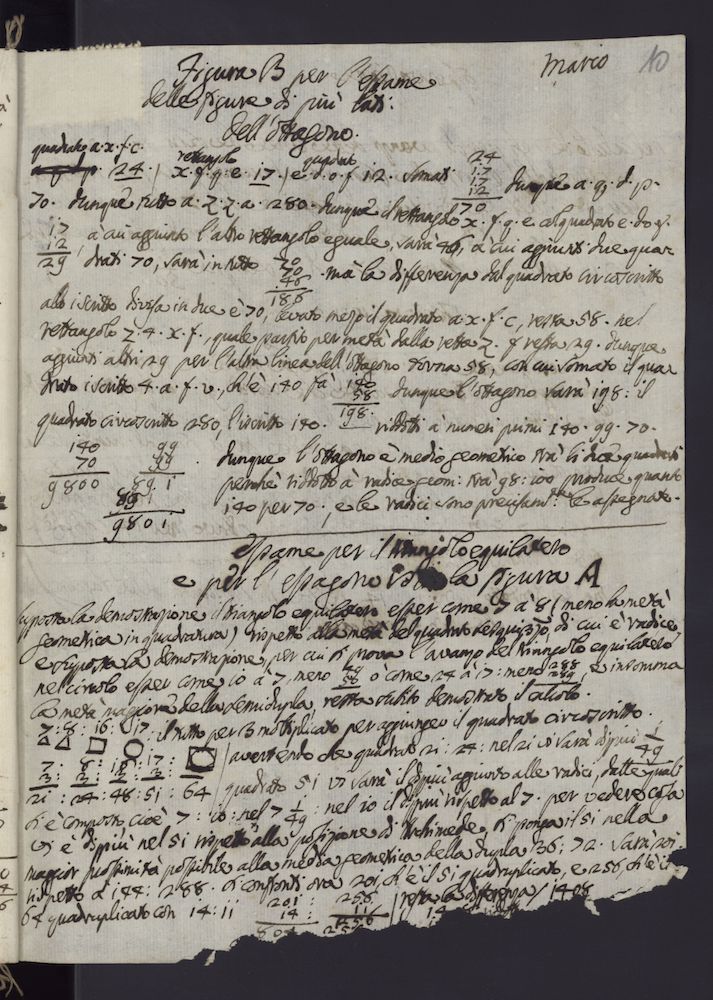 Figura B per l'essame
Mario
10
delle figure di più lati:
Dell'ottagono.
quadrato a. x. f. c.
24. / rettangolo x. f. q. e. 17. / e quadrat e. d. o. f 12. Somati
24
17
17
12
70
dunque a. q. d. p.
70. dunque tutto a. z. z. a. 280. dunque il rettangolo x. f. q. e al quadrato e. d. o. f.
17
12
29
à cui aggiunto l'altro rettangolo eguale, sarà 46, à cui aggiunti due qua
drati 70, sarà in tutto
70
70
46
186
. mà la differenza dal quadrato circoscritto
allo iscritto divisa in due è 70, levato mezo il quadrato a x. f. c, resta 58. nel
rettangolo z. 4. x. f., quale partito per metà dalla retta z. f resta 29. dunque
aggiunti altri 29 per l'altra linea dell'ottagono torna 58, con cui somato il qua
drato iscritto 4. a. f. v., ch'è 140 fà
140
58
198.
dunque l'ottagono sarà 198: il
quadrato circoscritto 280, l'iscritto 140.
ridotti à numeri primi 140. 99. 70.
140
70
9800
99
99
891
891
9801
dunque l'ottagono è medio geometrico trà li due quadrati
perchè ridotto à radice geom: trà 98: 100 produce quanto
140 per 70., e le radici sono precisam.te le assegnate.
essame per il triangolo equilatero
e per l'essagono la figura A
supposta la demostrazione il triangolo equilatero esser come 7 à 8 (meno la metà
geometrica in quadratura) rispetto alla metà del quadrato di cui è radice,
e supposta la demostrazione, per cui si prova l'avanzo del triangolo equilatero
nel circolo esser come 10 à 7, meno 49/58 ò come 24 à 17: meno 288/289, e insomma
la metà maggiore della semidupla, resta subito demostrato il calcolo.
7: 8: 16: 17. il tutto per 3 moltiplicato per aggiungere il quadrato circoscritto.
7: 8: 16: 17:
3: 3: 3: 3:
21: 24: 48: 51: 64
avertendo che quadrato 21: 24: nel 21 vi sarà di più 1/49
quadrato 51 vi sarà il di più aggiunto alle radici, dalle quali
si è composto cioè 7: 10: nel 7 1/49: nel 10 il di più rispetto al 7. per vedere cosa
vi è di più nel 51 rispetto alla posizione di Archimede, si ponga il 51 nella
maggior possimità possibile alla media geometrica della dupla 36: 72. sarà 201.
rispetto à 144: 288. si confronti ora 201, ch'è il 51 quadruplicato, e 256 ch'è il
64 quadruplicato con 14: 11
201:
14:
804
256
11
256
resta la differenza / 1408